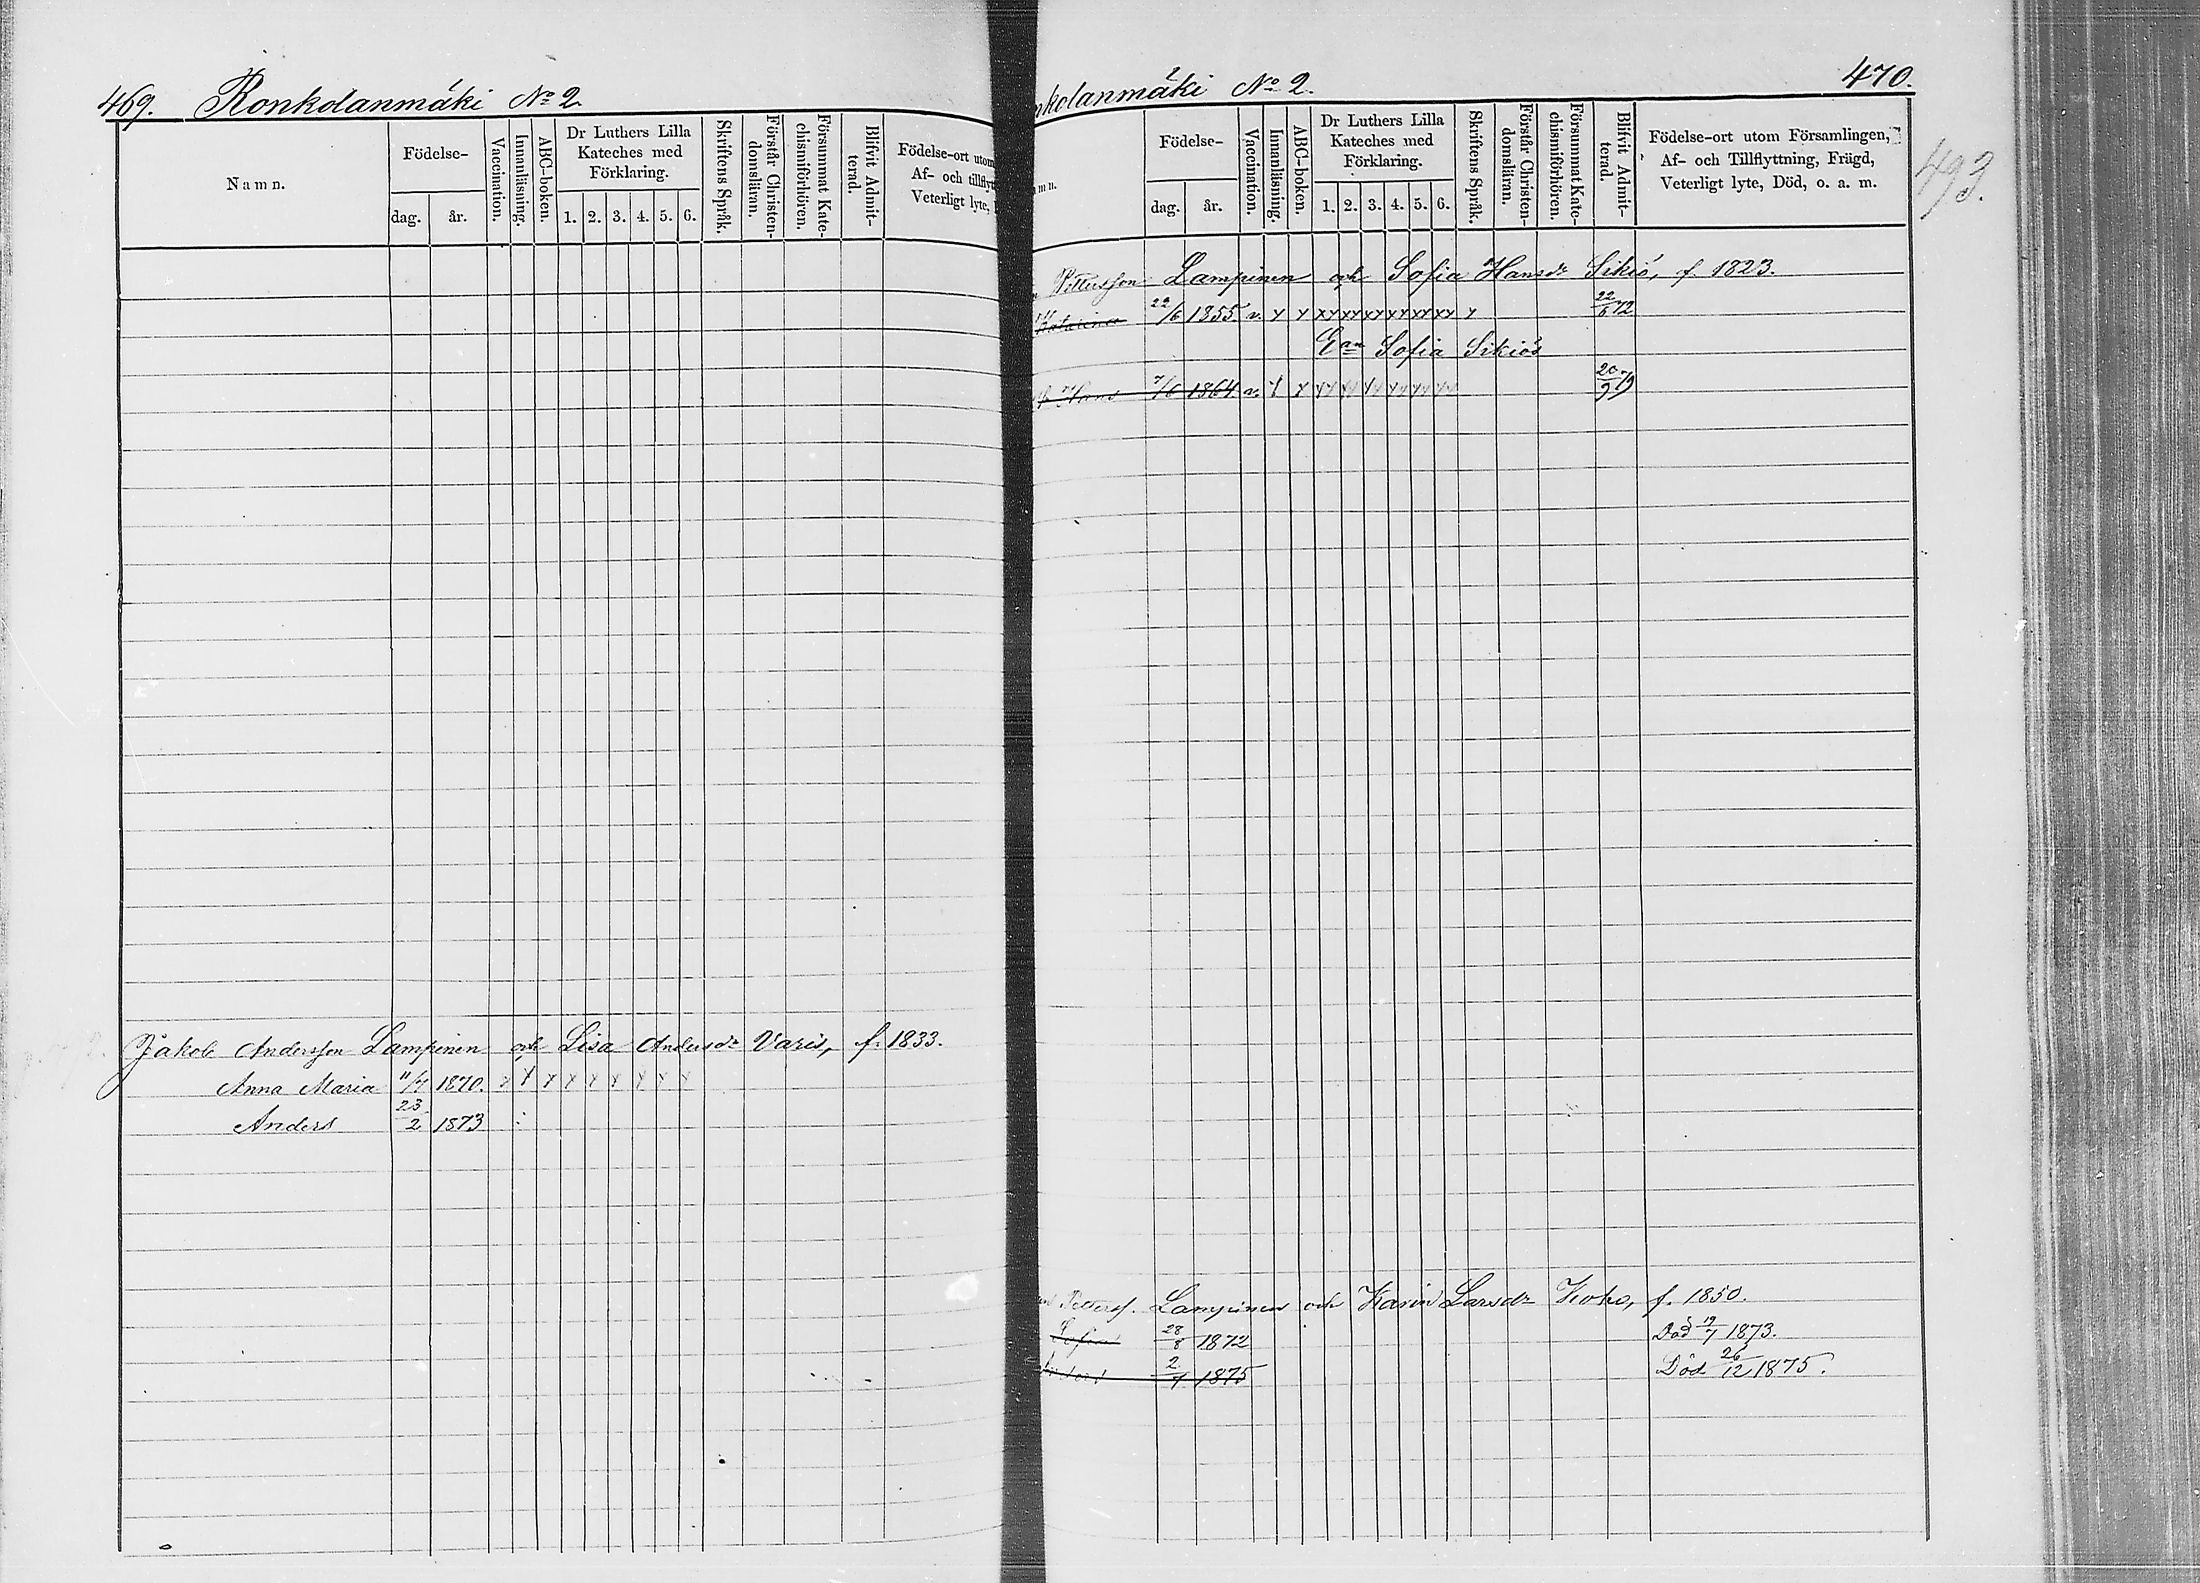 469. Ronkolanmäki No 2.
Namn.
Födelse-
dag. år.
Vaccination.
Innanläsning.
ABC-boken.
Dr Luthers Lilla
Kateches med
Förklaring.
1. 2. 3. 4. 5. 6.
Skriftens Språk.
Förstår Christen-
domsläran.
Försummat Kate-
chismiförhören.
Blifvit Admit-
terad.
Födelse-ort utom
Af- och tillflyt
Veterligt lyte,
Jakob Andersson Lampinen och Lisa Andersdr Varis, f. 1833.
Anna Maria 11/7 1870. x x x x x x x x x
Anders 23/2 1873
nkolanmäki No 2. 470.
493.
mn.
Födelse-
dag. år.
Vaccination.
Innanläsning.
ABC-boken.
Dr Luthers Lilla
Kateches med
Förklaring.
1. 2. 3. 4. 5. 6.
Skriftens Språk.
Förstår Christen-
domsläran.
Försummat Kate-
chismiförhören.
Blifvit Admit-
terad.
Födelse-ort utom Församlingen,
Af- och Tillflyttning, Frägd,
Veterligt lyte, Död, o. a. m.
Pettersson Lampinen och Sofia Hansdr Sikiö, f. 1823.
Katarina 22/6 1855. v. x x xx xx xx xx xx xx x 22/6 72
Ean Sofia Sikiös
Hans 7/6 1864 v. x x xx xx xx xx xx xx 20/9 79
Petterss. Lampinen och Karin Larsdr Koho, f. 1850.
Sofia 28/8 1872 Död 19/7 1873.
2/7 1875 Död 26/12 1875.